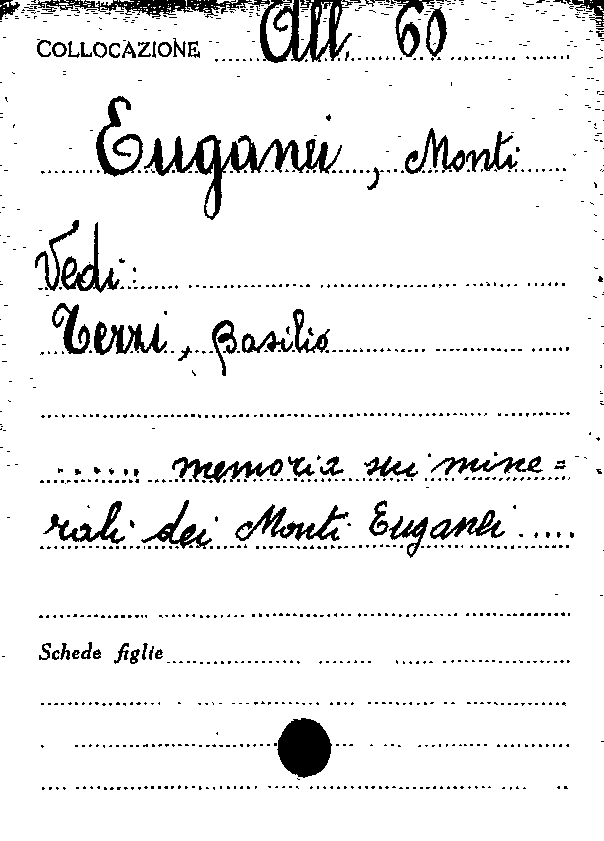 COLLOCAZIONE All. 60
Euganei, Monti
Vedi:
Terzi, Basilio
...... memoria sui mine=
rali dei Monti Euganei .....
Schede figlie